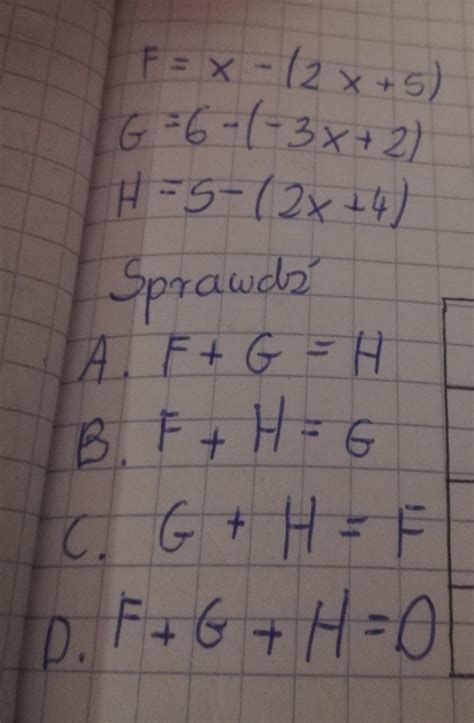 F = x - (2x + 5)
G = 6 - (-3x + 2)
H = 5 - (2x + 4)
Sprawdź
A. F + G = H
B. F + H = G
C. G + H = F
D. F + G + H = 0